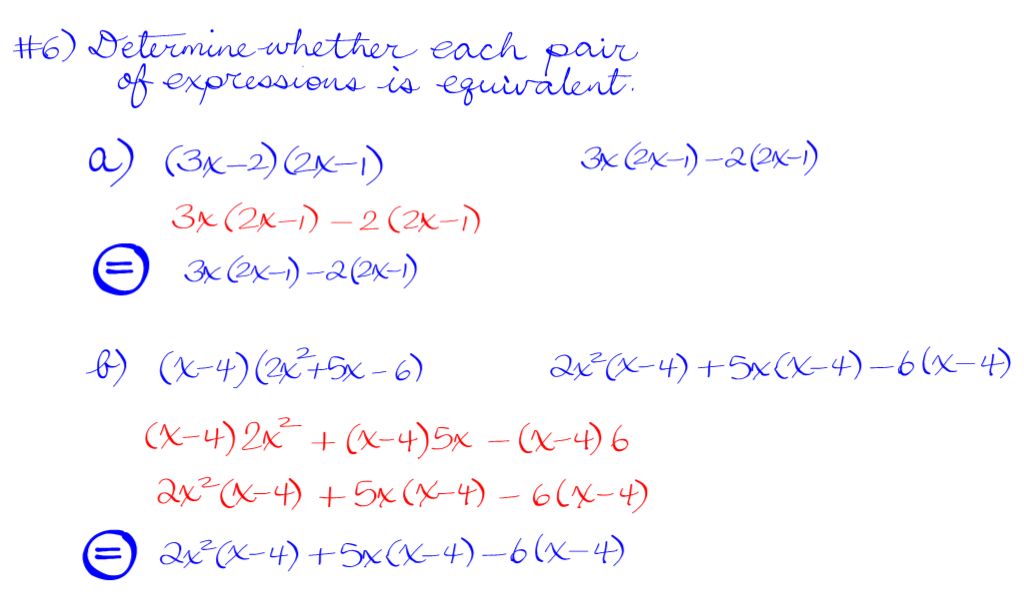 #6) Determine whether each pair
of expressions is equivalent.
a) (3x-2)(2x-1) 3x(2x-1)-2(2x-1)
3x(2x-1) - 2(2x-1)
= 3x(2x-1)-2(2x-1)
b) (x-4)(2x²+5x-6) 2x²(x-4)+5x(x-4)-6(x-4)
(x-4)2x² + (x-4)5x - (x-4)6
2x²(x-4) + 5x(x-4) - 6(x-4)
= 2x²(x-4)+5x(x-4)-6(x-4)